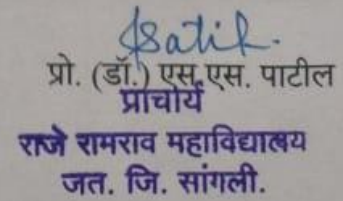 प्रो. (डॉ.) एस.एस. पाटील
प्राचार्य
राजे रामराव महाविद्यालय
जत. जि. सांगली.